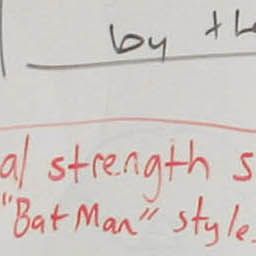 by the
al strength s
"BatMan" style.